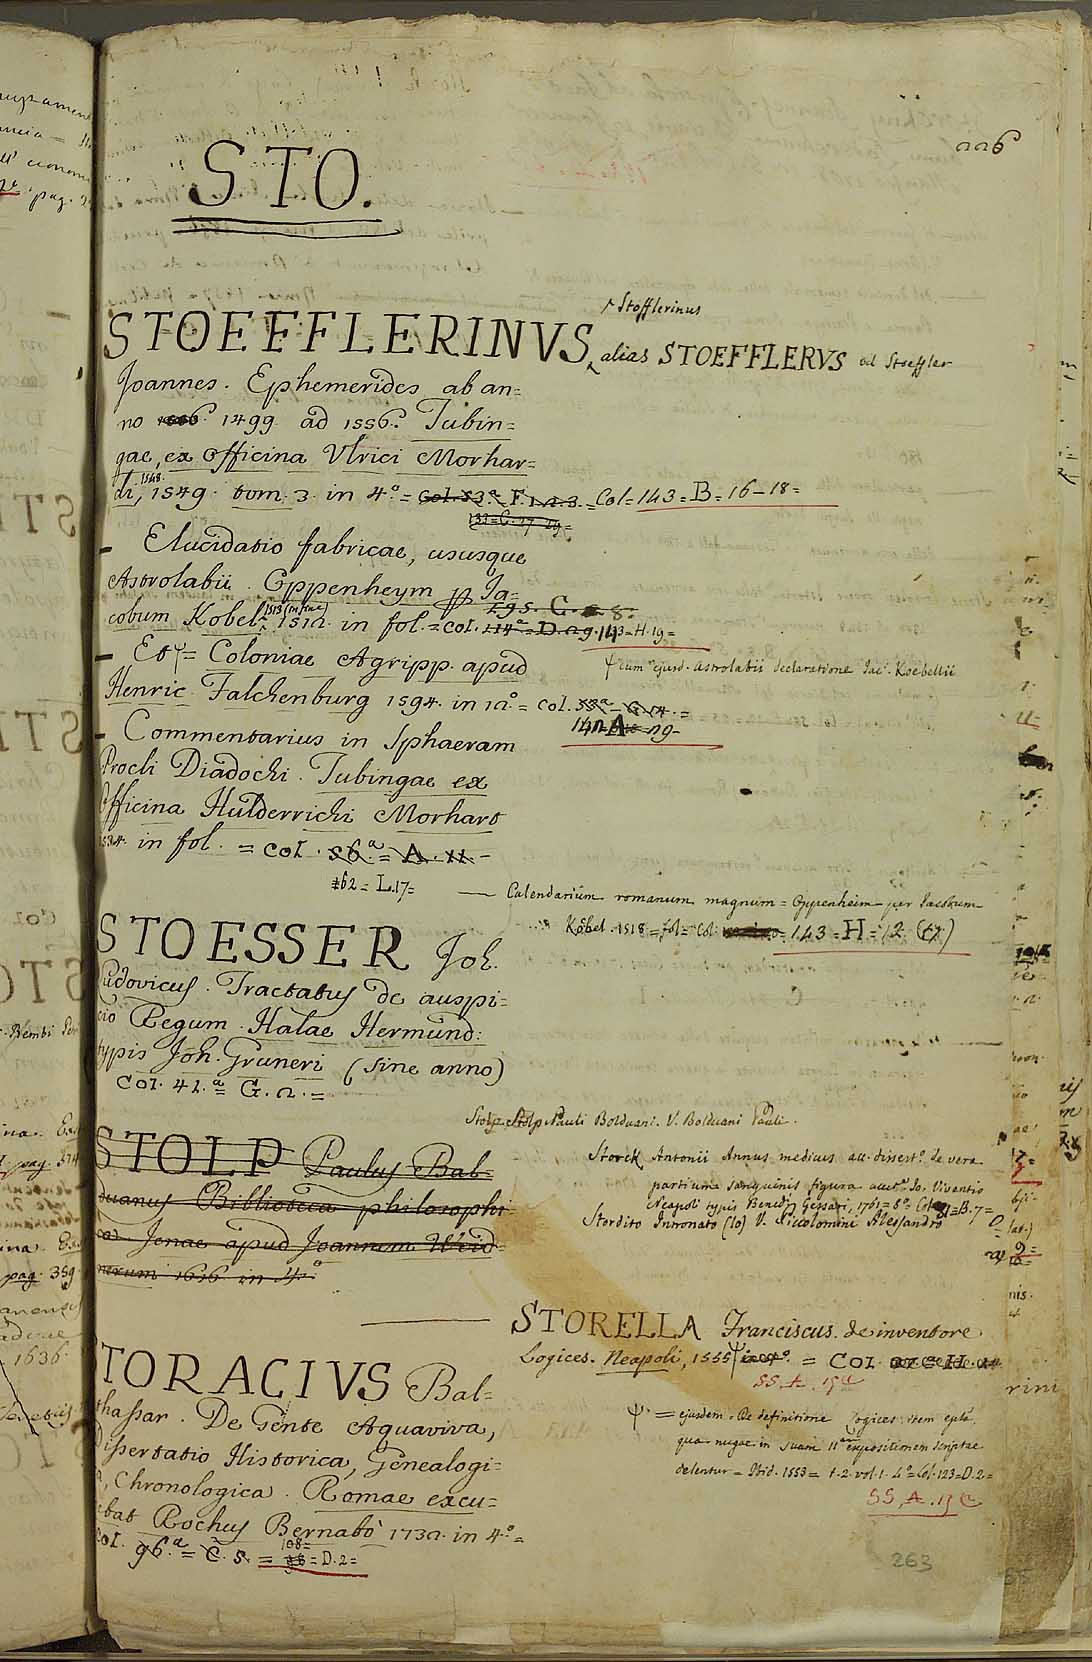 226
STO.
Stofflerinus
STOEFFLERINVS, alias STOEFFLERVS vel Stoeffler
Joannes. Ephemerides ab an=
no 1499 ad 1556. Tubin=
gae, ex Officina Vlrici Morhar=
1548.
di, 1549. tom. 3. in 4.º = Col. 53.ª F. 1.2.3. = Col = 143 = B = 16-18 =
133 = C. 27 29 =
— Elucidatio fabricae, ususque
Astrolabii. Oppenheym p Ja=
195. G. 8.
1513 (in fine)
cobum Kobel. 1512. in fol. = Col. 114ª = D. 29. 143 = H. 19 =
— Et ψ = Coloniae Agripp. apud
ψ cum ejusd. Astrolabii declaratione Jac. Koebellii
Henric. Falchenburg 1594. in 12.º = Col. 33ª = G. 14. =
142 = A = 29 -
— Commentarius in Sphaeram
Procli Diadochi. Tubingae ex
Officina Hulderrichi Morhart
1534. in fol. = Col. 56.ª = A. 11. -
162 = L. 17 =
— Calendarium romanum magnum = Oppenheim per Jacobum
Köbel. 1518 = fol = Col. = 143 = H = 12
STOESSER Joh.
Ludovicus. Tractatus de auspi=
cio Regum. Halae Hermund:
typis Joh. Gruneri (sine anno)
Col. 41.ª G. 2. =
Stolp Stolp Pauli Bolduani. V. Bolduani Pauli.
STOLP Paulus Bal-
duanus Bibliotheca philosophi
ca Jenae apud Joannem Weid=
nerum 1616 in 4º
Storck Antonii Annus medicus acc. dissert.º de vera
partium sanguinis figura auct.e Jo. Viventio
Neapoli typis Bened. Gessari, 1761 = 8º = Col = B. 7 =
Stordito Intronato (lo) V. Piccolomini Alessandro
STORELLA Franciscus. de inventore
Logices. Neapoli, 1555 ψ in 4º. = Col. 27 = H.
SS. A. 19
ψ = ejusdem. De definitione Logices. item
qua nugae in suam expositionem scriptae
delentur = Ibid. 1553 = t. 2. vol. 1. 4º = Col. 123 = D. 2 =
SS. A. 19
STORACIVS Bal=
thassar. De Gente Aquaviva,
Dissertatio Historica, Genealogi=
ca, Chronologica. Romae excu=
debat Rochus Bernabò 1732. in 4.º =
Col. 96.ª = C. 5. = 108 = D. 2 =
263